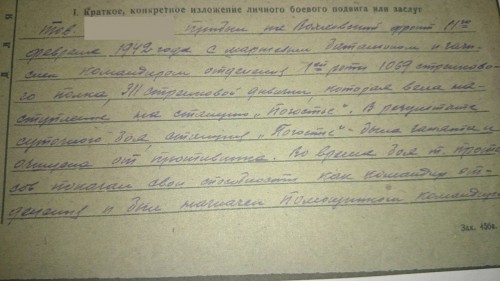 I. Краткое, конкретное изложение личного боевого подвига или заслуг
Тов. Прибыл на Волховский фронт 1го
февраля 1942 года с маршевым батальоном и
командиром отделения 1ой роты 1069 стрелково-
го полка, 311 стрелковой дивизии которая вела на-
ступление на станцию „Погостье“. В результате
суточного боя, станция „Погостье“ была занята и
очищена от противника. Во время боя т.
сов показал свои способности как командир от-
деления и был назначен Помощником командира
Зак. 436н.